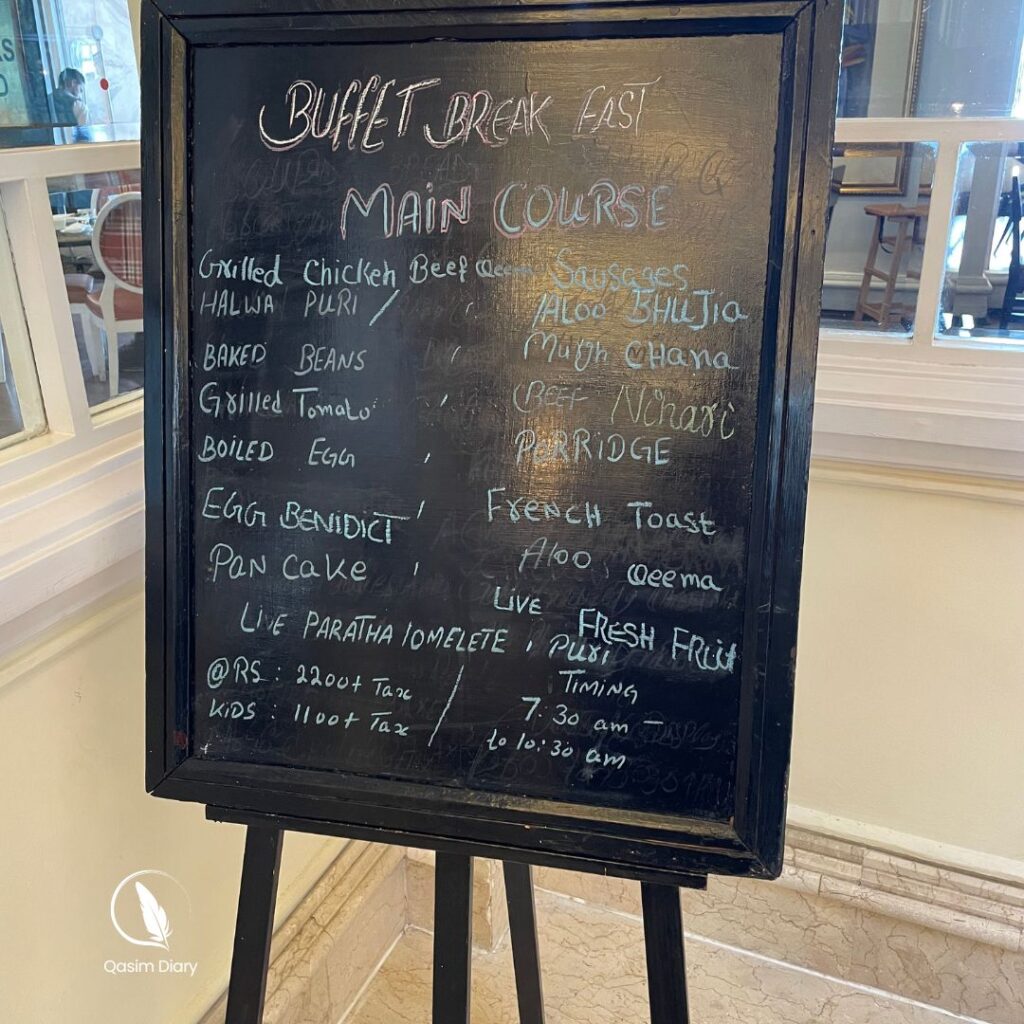 BUFFET BREAK FAST
MAIN COURSE
Grilled Chicken Beef Qeem Sausages
HALWA PURI / ALOO BHUJIA
BAKED BEANS , Murgh CHANA
Grilled Tomato , BEEF Nihari
BOILED EGG , PORRIDGE
EGG BENIDICT , FRENCH Toast
PAN CAKE , Aloo , Qeema
LIVE FRESH FRUIT
LIVE PARATHA / OMELETE , PURI
@RS : 2200+ Tax / TIMING
KIDS : 1100+ Tax 7:30 am –
to 10:30 am
Qasim Diary